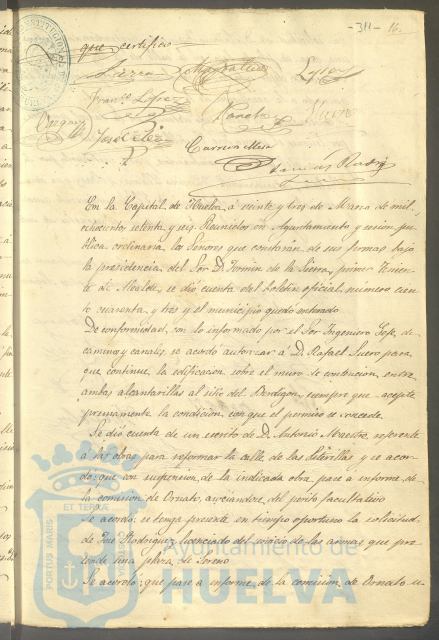 -311- 16.
que certifico
Sierra
Lopez
Franco. Lopez
Jose
Carrion Mesa
En la Capital de Huelva á veinte y tres de Marzo de mil
ochocientos setenta y seis. Reunidos en Ayuntamiento y sesion pú-
blica ordinaria los Señores que constarán de sus firmas bajo
la presidencia del Sor. D. Fermin de la Sierra, primer Tenien-
te de Alcalde, se dió cuenta del boletin oficial número cien-
to cuarenta y tres y el municipio quedó enterado.
De conformidad con lo informado por el Sor Ingeniero Gefe de
caminos y canales, se acordo autorizar á D. Rafael Suero para
que continue la edificacion sobre el muro de contencion, entre
ambas alcantarillas al sitio del Berdigon, siempre que acepte
previamente la condicion con que el permiso se concede.
Se dió cuenta de un escrito de D. Antonio Maestre, referente
á las obras para reformar la calle de las Señorillas y se acor-
dó: que con suspension de la indicada obra, pase á informe de
la comision de Ornato, asociandose del perito facultativo
Se acordó: se tenga presente en tiempo oportuno la solicitud
de José Rodriguez, licenciado del servicio de las armas que pre-
tende una plaza de Sereno
Se acordó: que pase á informe de la comision de Ornato u-
PORTUS MARIS
ET TERRÆ
Ayuntamiento de
HUELVA